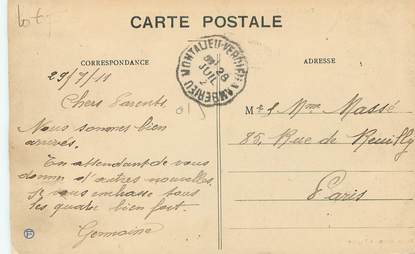 lot
CARTE POSTALE
CORRESPONDANCE
ADRESSE
MONTALIEU-VERCIEU A AMBERIEU
28
JUIL
29/7/11
Chers Parents
Nous sommes bien
arrivés.
En attendant de vous
donner d'autres nouvelles
Je vous embrasse tous
les quatre bien fort.
Germaine
Mr & Mme Massé
85, Rue de Reuilly
Paris